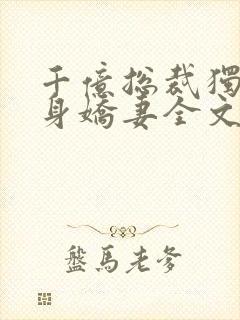 千億总裁獨
身嬌妻全文
盤馬老爹